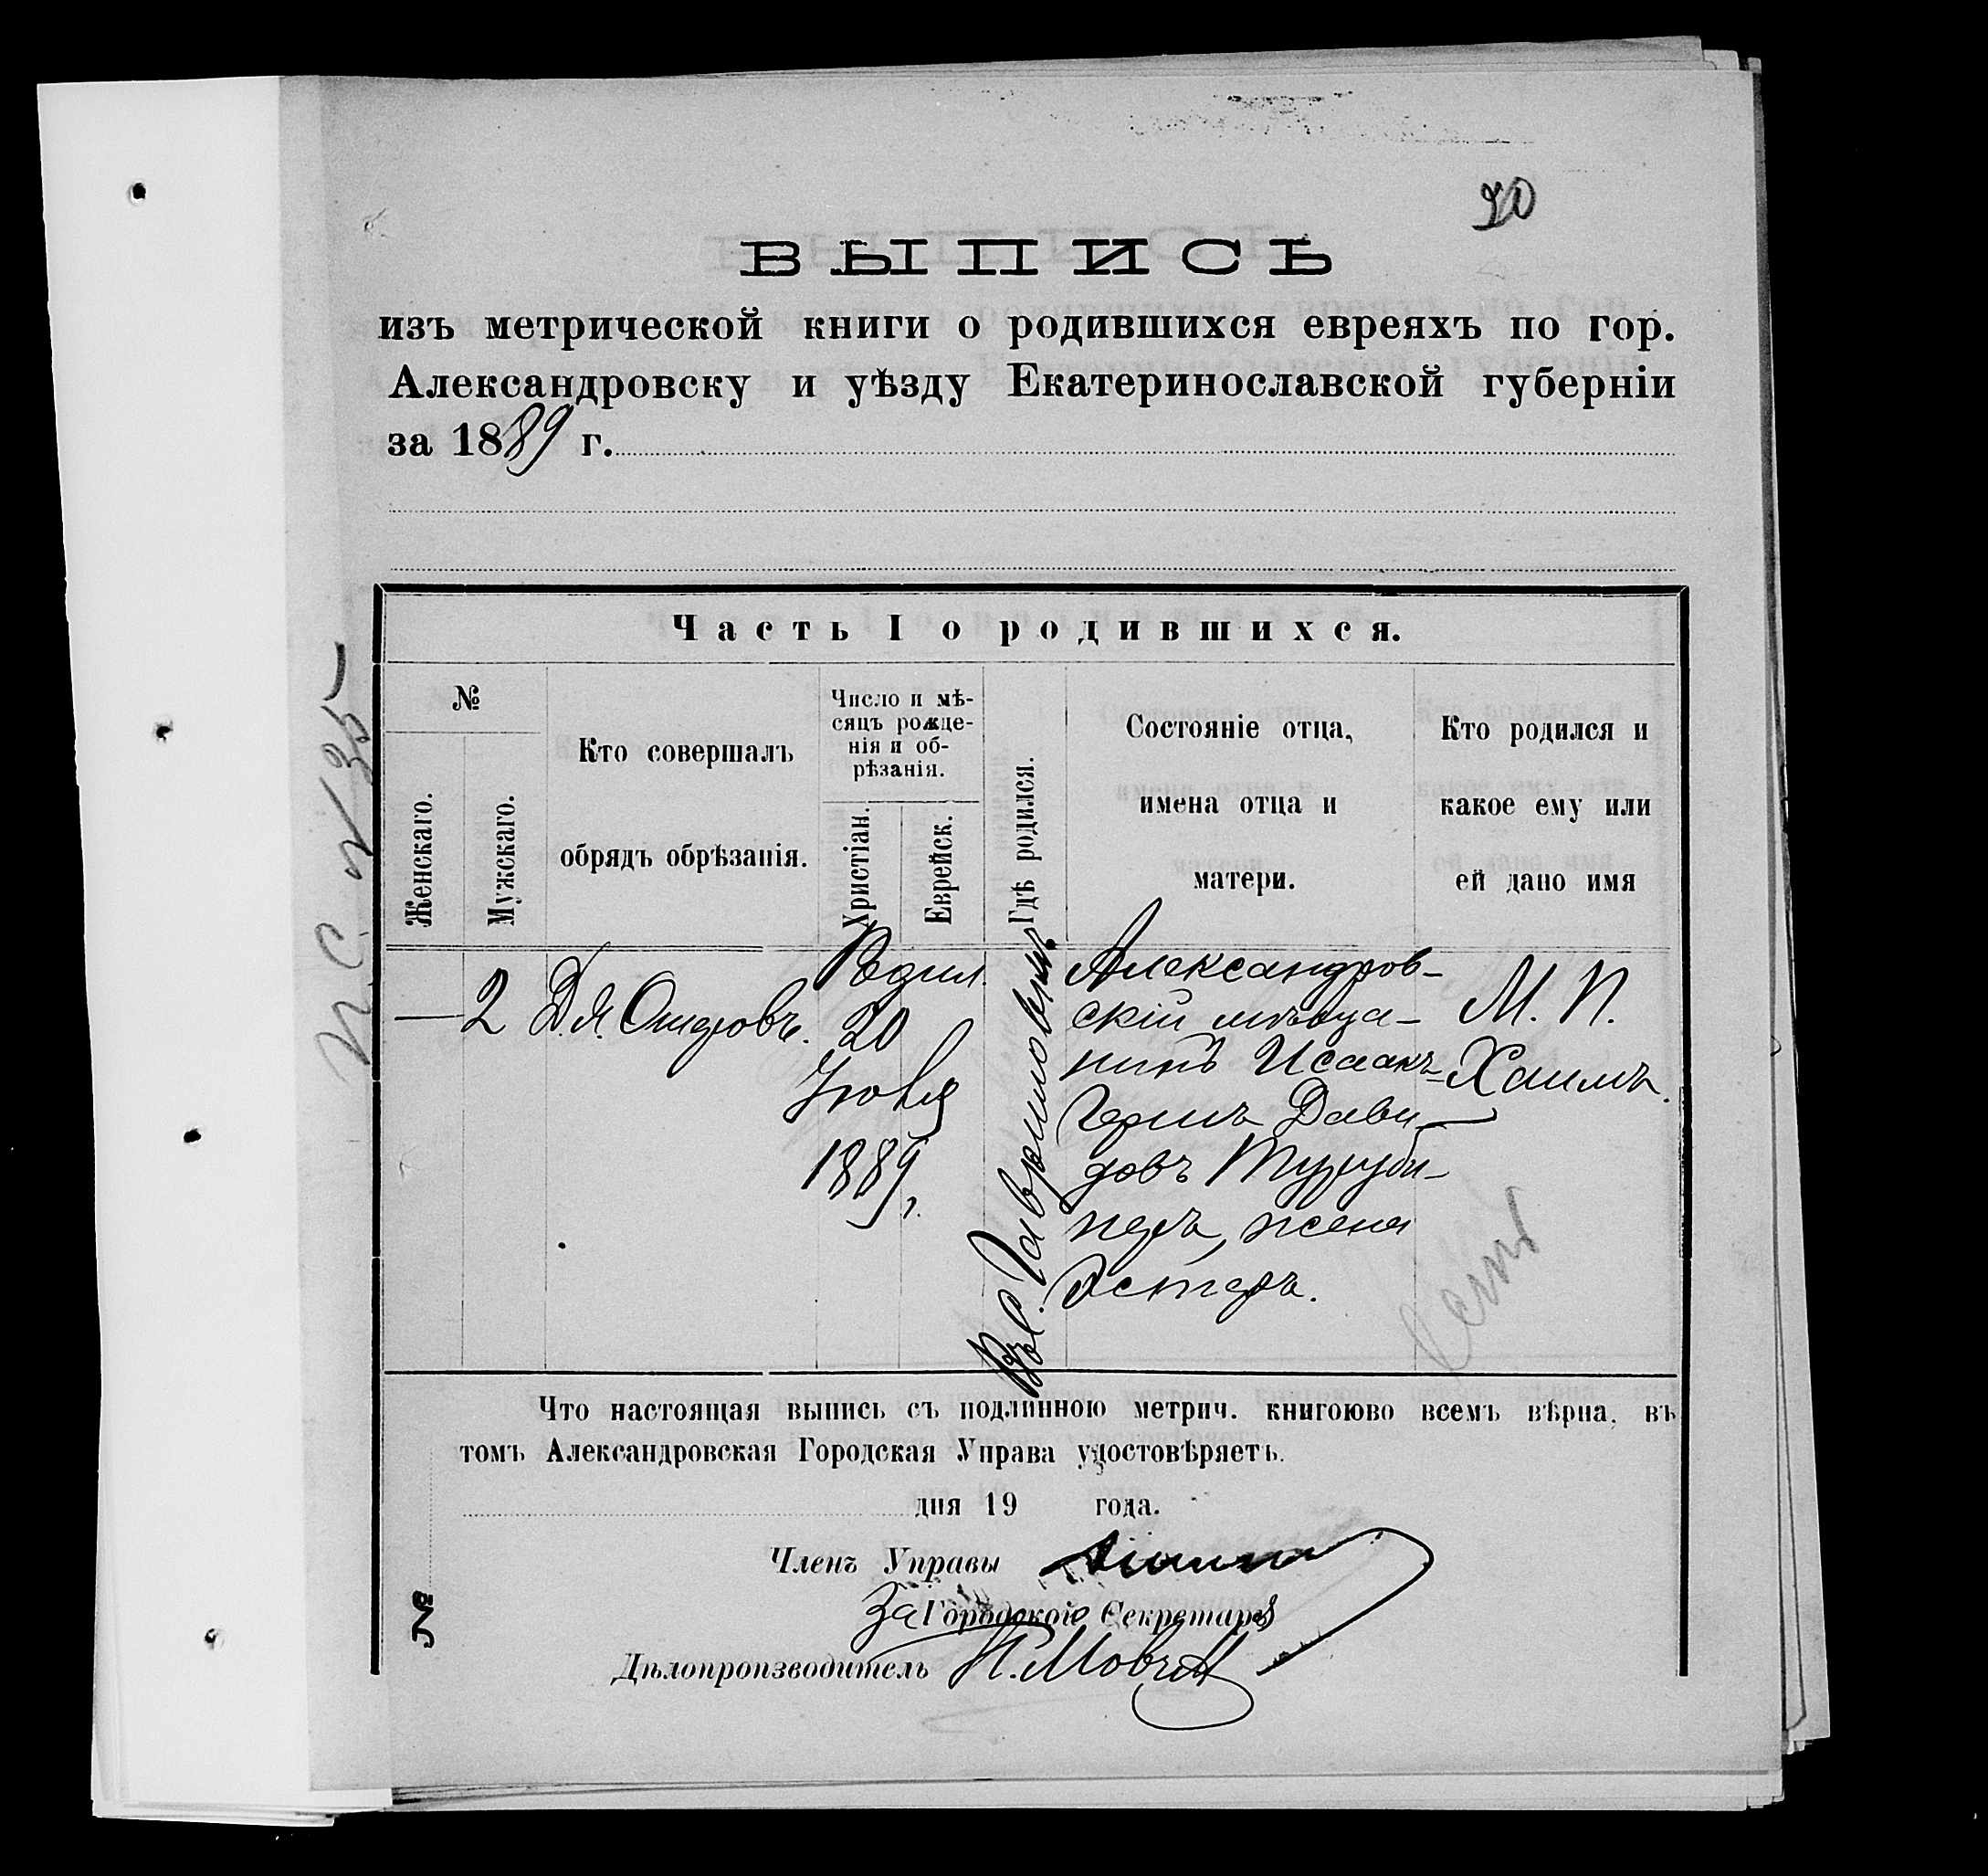 20
ВЫПИСЬ
изъ метрической книги о родившихся евреяхъ по гор.
Александровску и уѣзду Екатеринославской губерніи
за 1889 г.
Часть I о родившихся.
№
Женскаго.
Мужскаго.
Кто совершалъ
обрядъ обрѣзанія.
Число и мѣ-
сяцъ рожде-
нія и об-
рѣзанія.
Христіан.
Еврейск.
Гдѣ родился.
Состояніе отца,
имена отца и
матери.
Кто родился и
какое ему или
ей дано имя
— 2
Д. Я.
Родил.
20
1889 г.
Въ с. Гавриловкѣ
Александров-
скій мѣща-
нинъ Исаакъ-
Гершъ Дави-
довъ Туруби-
неръ, жена
Эстеръ.
М. П.
Хаимъ.
П. С. № 35
Что настоящая выпись съ подлинною метрич. книгоюво всемъ вѣрна, въ
томъ Александровская Городская Управа удостовѣряетъ.
дня 19 года.
Членъ Управы
За Городской Секретарь
Дѣлопроизводитель
№